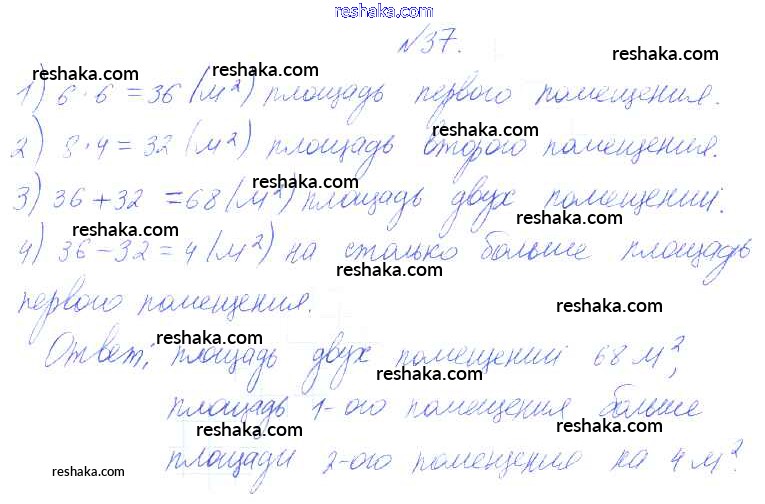 reshaka.com
№37.
reshaka.com reshaka.com reshaka.com
1) 6 · 6 = 36 (м²) площадь первого помещения.
reshaka.com reshaka.com
2) 8 · 4 = 32 (м²) площадь второго помещения.
reshaka.com
3) 36 + 32 = 68 (м²) площадь двух помещений.
reshaka.com reshaka.com
4) 36 – 32 = 4 (м²) на столько больше площадь
reshaka.com
первого помещения.
reshaka.com reshaka.com
Ответ: площадь двух помещений 68 м²,
reshaka.com
площадь 1-ого помещения больше
reshaka.com reshaka.com
площади 2-ого помещения на 4 м².
reshaka.com